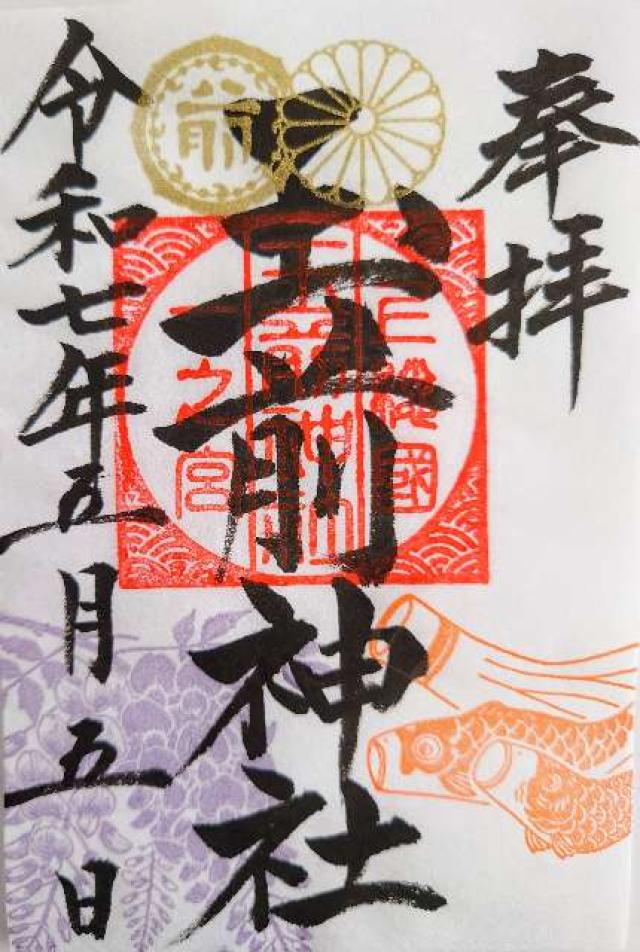 奉拝
上総國
玉前神社
一之宮
前
玉前神社
令和七年五月五日